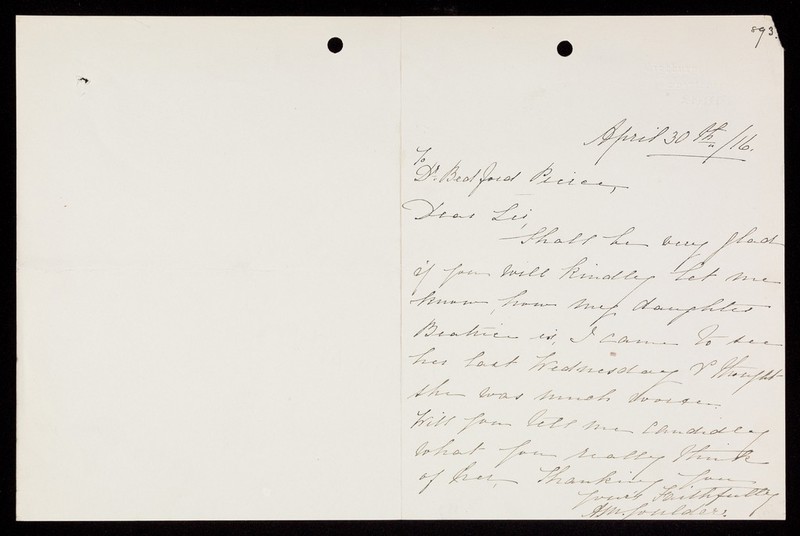 893.
April 30th/16.
To
Dr. Bedford Pierce,
Dear Sir,
Shall be very glad
if you will kindley let me
know, how my daughter
Beatrice is, I came to see
her last Wednesday & thought
she was much worse.
Will you tell me candidley
what you really think
of her, Thanking you
yours Faithfully